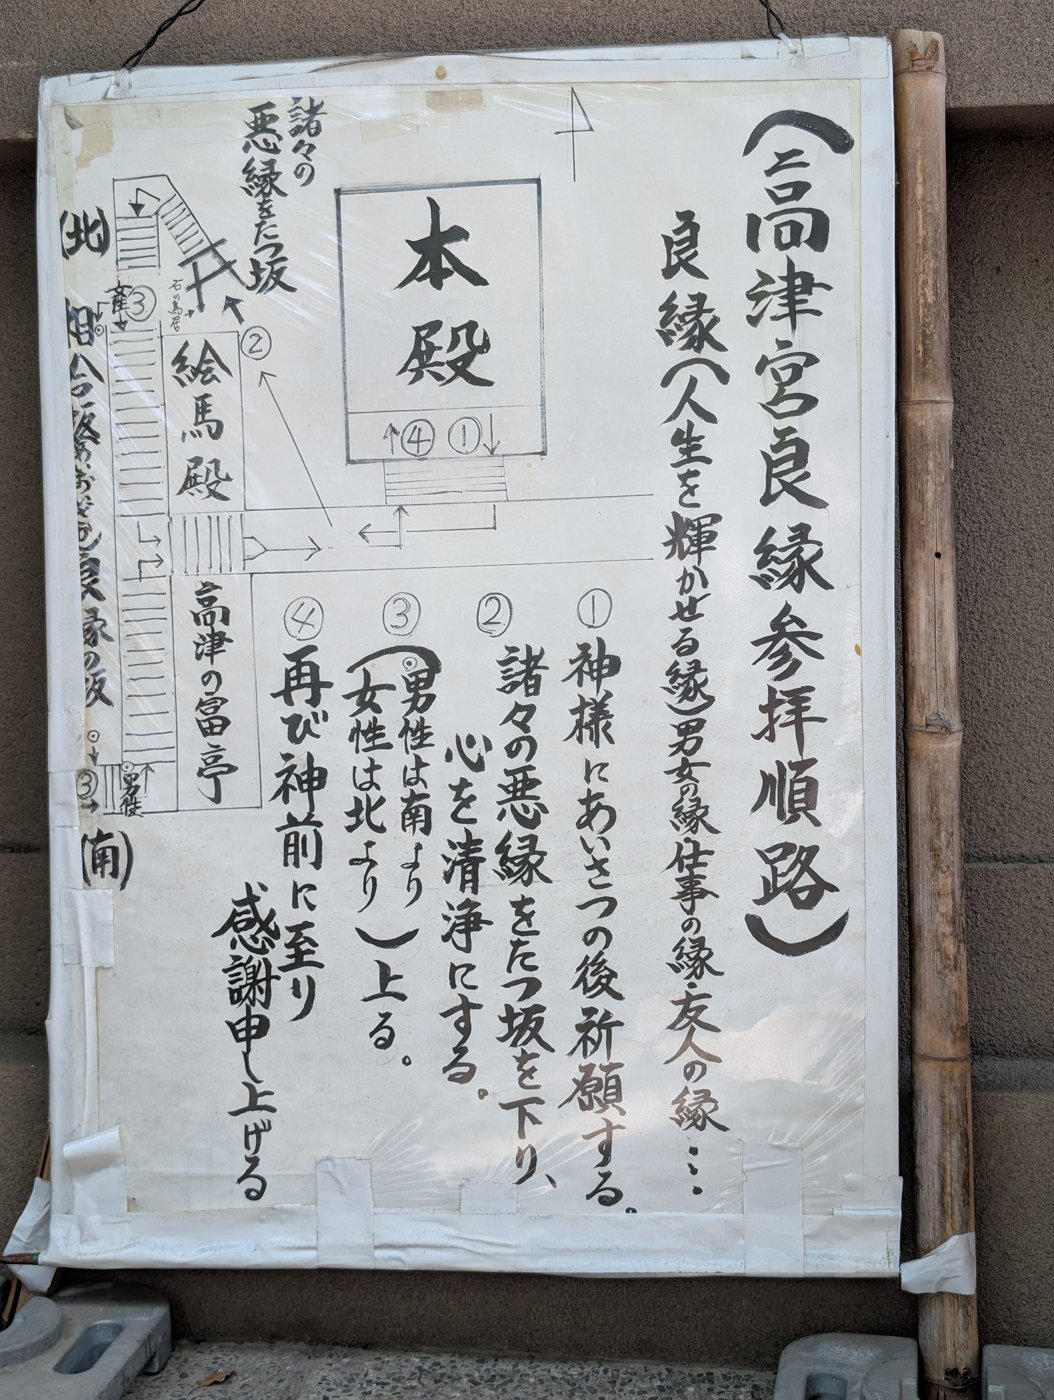 （高津宮良縁参拝順路）
良縁（人生を輝かせる縁）男女の縁仕事の縁・友人の縁…
① 神様にあいさつの後祈願する。
② 諸々の悪縁をたつ坂を下り、
心を清浄にする。
③（男性は南より
女性は北より）上る。
④ 再び神前に至り
感謝申し上げる
本殿
④ ①
諸々の
悪縁をたつ坂
②
石の鳥居
絵馬殿
高津の富亭
(北)
女性
③
相合坂
良縁の坂
③
男性
(南)